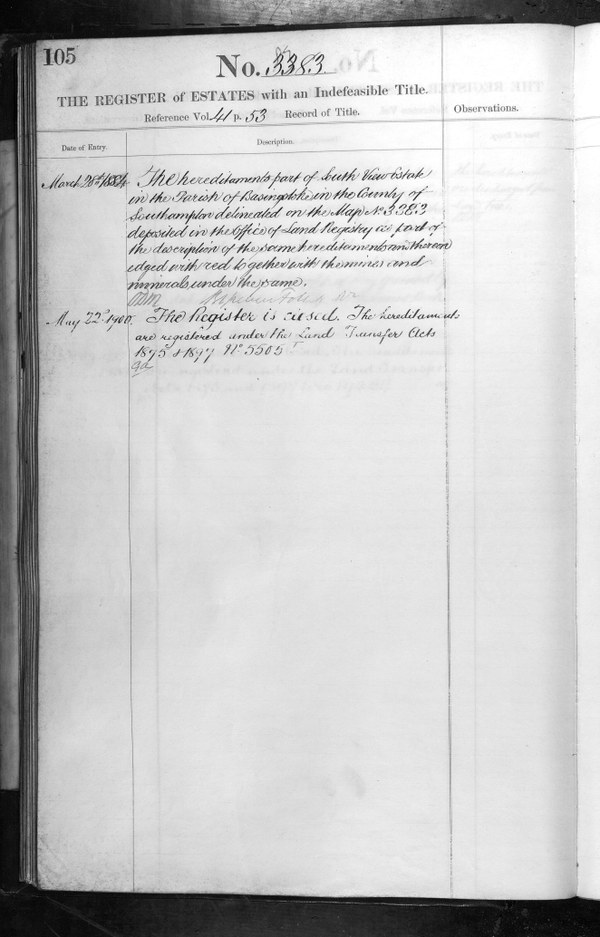 105
No. 3383
THE REGISTER of ESTATES with an Indefeasible Title.
Reference Vol. 41 p. 53 Record of Title.
Observations.
Date of Entry.
Description.
March 28th 1884 The hereditaments part of South View Estate
in the Parish of Basingstoke in the County of
Southampton delineated on the Map No. 3383
deposited in the Office of Land Registry as part of
the description of the same hereditaments and thereon
edged with red together with the mines and
minerals under the same.
May 22d 1900. The Register is closed. The hereditaments
are registered under the Land Transfer Acts
1875 & 1897 No. 5505